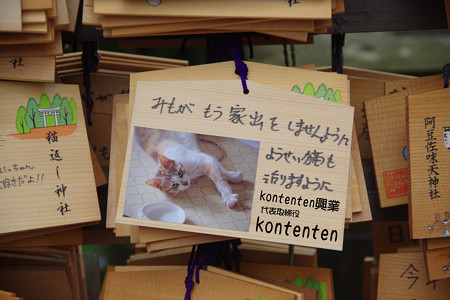 みもが もう 家出を しませんように
ようせい猫も
治りますように
kontenten興業
代表取締役
kontenten
猫返し神社
阿豆佐味天神社
社
今